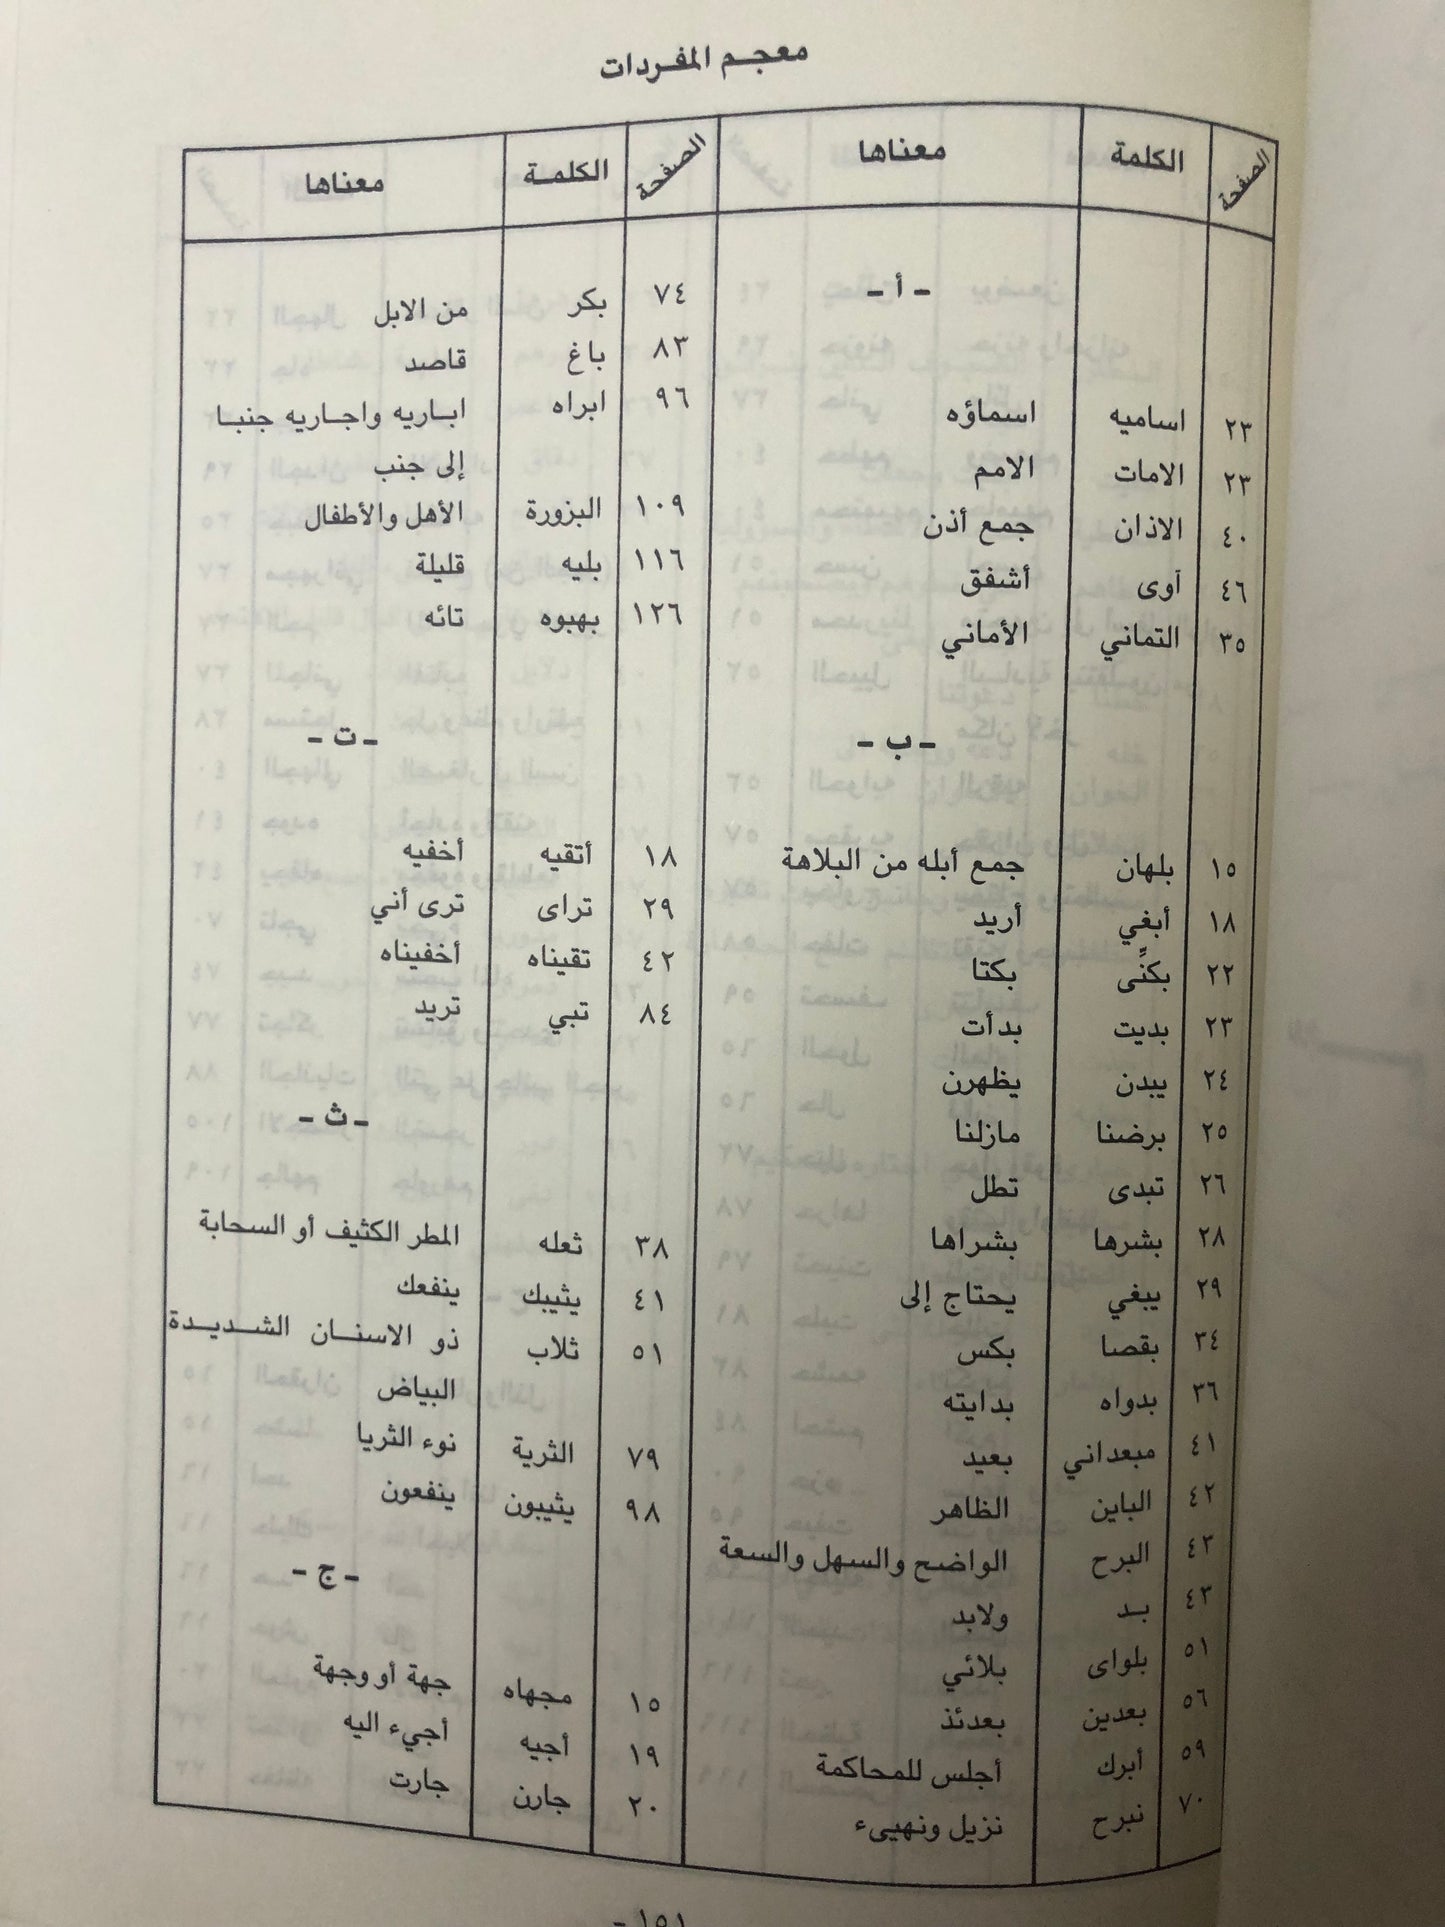 معجم المفردات
الصفحة الكلمة معناها
- أ -
٢٣ اساميه اسماؤه
٢٣ الامات الامم
٤٠ الاذان جمع أذن
٤٦ آوى أشفق
٣٥ التماني الأماني
- ب -
١٥ بلهان جمع أبله من البلاهة
١٨ أبغي أريد
٢٢ بكنًى بكتا
٢٣ بديت بدأت
٢٤ يبدن يظهرن
٢٥ برضنا مازلنا
٢٦ تبدى تطل
٢٨ بشرها بشراها
٢٩ يبغي يحتاج إلى
٣٤ بقصا بكس
٣٦ بدواه بدايته
٤١ مبعداني بعيد
٤٢ الباين الظاهر
٤٣ البرح الواضح والسهل والسعة
٤٣ بد ولابد
٥١ بلواى بلائي
٥٦ بعدين بعدئذ
٥٩ أبرك أجلس للمحاكمة
٧٠ نبرح نزيل ونهيىء
الصفحة الكلمة معناها
٧٤ بكر من الابل
٨٣ باغ قاصد
٩٦ ابراه اباريه واجاريه جنبا
إلى جنب
١٠٩ البزورة الأهل والأطفال
١١٦ بليه قليلة
١٢٦ بهبوه تائه
- ت -
١٨ أتقيه أخفيه
٢٩ تراى ترى أني
٤٢ تقيناه أخفيناه
٨٤ تبي تريد
- ث -
٣٨ ثعله المطر الكثيف أو السحابة
٤١ يثيبك ينفعك
٥١ ثلاب ذو الاسنان الشديدة
البياض
٧٩ الثرية نوء الثريا
٩٨ يثيبون ينفعون
- ج -
١٥ مجهاه جهة أو وجهة
١٩ أجيه أجيء اليه
٢٠ جارن جارت
١٥١ -